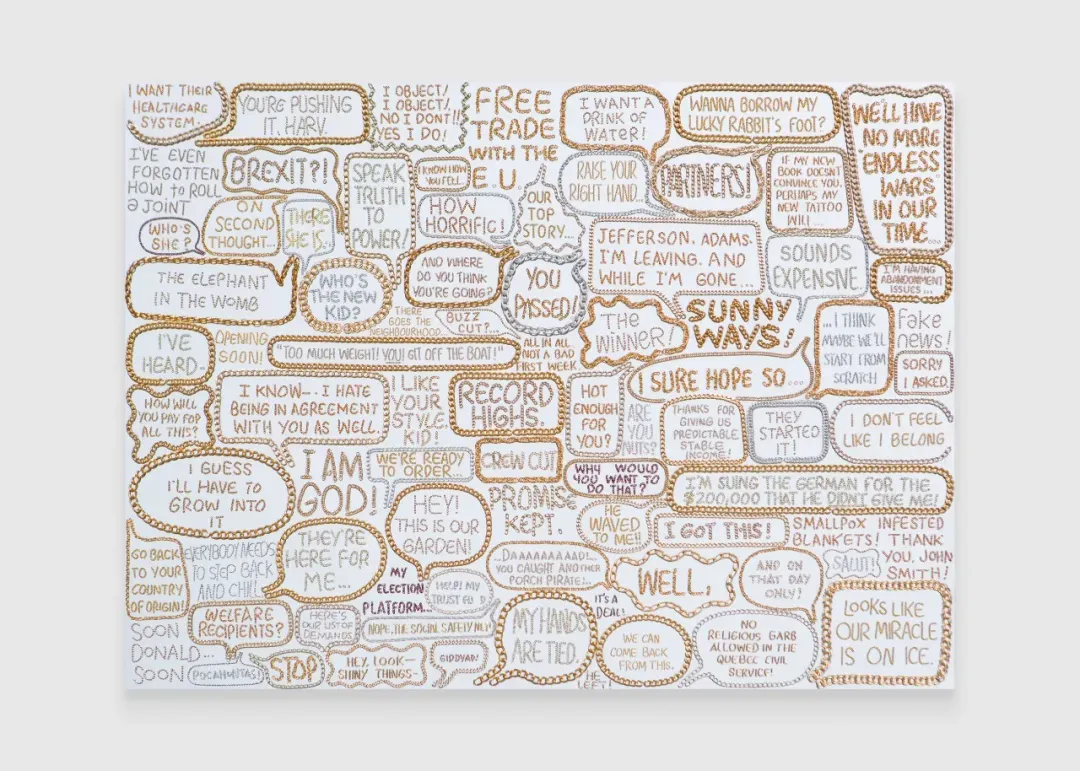 I WANT THEIR
HEALTHCARE
SYSTEM.
YOU'RE PUSHING
IT, HARV.
I OBJECT!
I OBJECT!
NO I DON'T!!
YES I DO!
FREE
TRADE
WITH THE
E U
I WANT A
DRINK OF
WATER!
WANNA BORROW MY
LUCKY RABBIT'S FOOT?
WE'LL HAVE
NO MORE
ENDLESS
WARS
IN OUR
TIME...
I'VE EVEN
FORGOTTEN
HOW to ROLL
a JOINT
BREXIT?!
SPEAK
TRUTH
TO
POWER!
I KNOW HOW
YOU FELL.
RAISE YOUR
RIGHT HAND...
PARTNERS!
IF MY NEW
BOOK DOESN'T
CONVINCE YOU,
PERHAPS MY
NEW TATTOO
WILL...
WHO'S
SHE?
ON
SECOND
THOUGHT...
THERE
SHE IS.
HOW
HORRIFIC!
OUR
TOP
STORY...
JEFFERSON, ADAMS.
I'M LEAVING. AND
WHILE I'M GONE...
SOUNDS
EXPENSIVE.
I'M HAVING
ABANDONMENT
ISSUES...
THE ELEPHANT
IN THE WOMB
WHO'S
THE NEW
KID?
AND WHERE
DO YOU THINK
YOU'RE GOING?
YOU
PASSED!
THERE
GOES THE
NEIGHBOURHOOD...
BUZZ
CUT?...
THE
WINNER!
SUNNY
WAYS!
...I THINK
MAYBE WE'LL
START FROM
SCRATCH
fake
news!
I'VE
HEARD-
OPENING
SOON!
"TOO MUCH WEIGHT! YOU! GIT OFF THE BOAT!"
ALL IN ALL
NOT A BAD
FIRST WEEK
I SURE HOPE SO...
SORRY
I ASKED.
HOW WILL
YOU PAY FOR
ALL THIS?
I KNOW-- I HATE
BEING IN AGREEMENT
WITH YOU AS WELL.
I LIKE
YOUR
STYLE,
KID!
RECORD
HIGHS.
HOT
ENOUGH
FOR
YOU?
ARE
YOU
NUTS?
THANKS FOR
GIVING US
PREDICTABLE
STABLE
INCOME!
THEY
STARTED
IT!
I DON'T FEEL
LIKE I BELONG
I GUESS
I'LL HAVE TO
GROW INTO
IT
I AM
GOD!
WE'RE READY
TO ORDER...
CREW CUT
WHY WOULD
YOU WANT TO
DO THAT?
I'M SUING THE GERMAN FOR THE
$200,000 THAT HE DIDN'T GIVE ME!
HEY!
THIS IS OUR
GARDEN!
PROMISE
KEPT.
HE
WAVED
TO ME!!
I GOT THIS!
SMALLPOX INFESTED
BLANKETS! THANK
YOU, JOHN
SMITH!
GO BACK
TO YOUR
COUNTRY
OF ORIGIN!
EVERYBODY NEEDS
TO STEP BACK
AND CHILL
THEY'RE
HERE FOR
ME...
MY
ELECTION
PLATFORM...
HELP! MY
TRUST FU D
...DAAAAAAAAD!...
YOU CAUGHT ANOTHER
PORCH PIRATE!...
WELL,
AND ON
THAT DAY
ONLY?
SALUT!
WELFARE
RECIPIENTS?
HERE'S
OUR LIST OF
DEMANDS
NOPE, THE SOCIAL SAFETY NET
MY HANDS
ARE TIED.
IT'S A
DEAL!
WE CAN
COME BACK
FROM THIS.
NO
RELIGIOUS GARB
ALLOWED IN THE
QUEBEC CIVIL
SERVICE!
LOOKS LIKE
OUR MIRACLE
IS ON ICE.
SOON
DONALD...
SOON
POCAHONTAS!
STOP
HEY, LOOK--
SHINY THINGS-
GIDDYAP!
HE
LEFT!